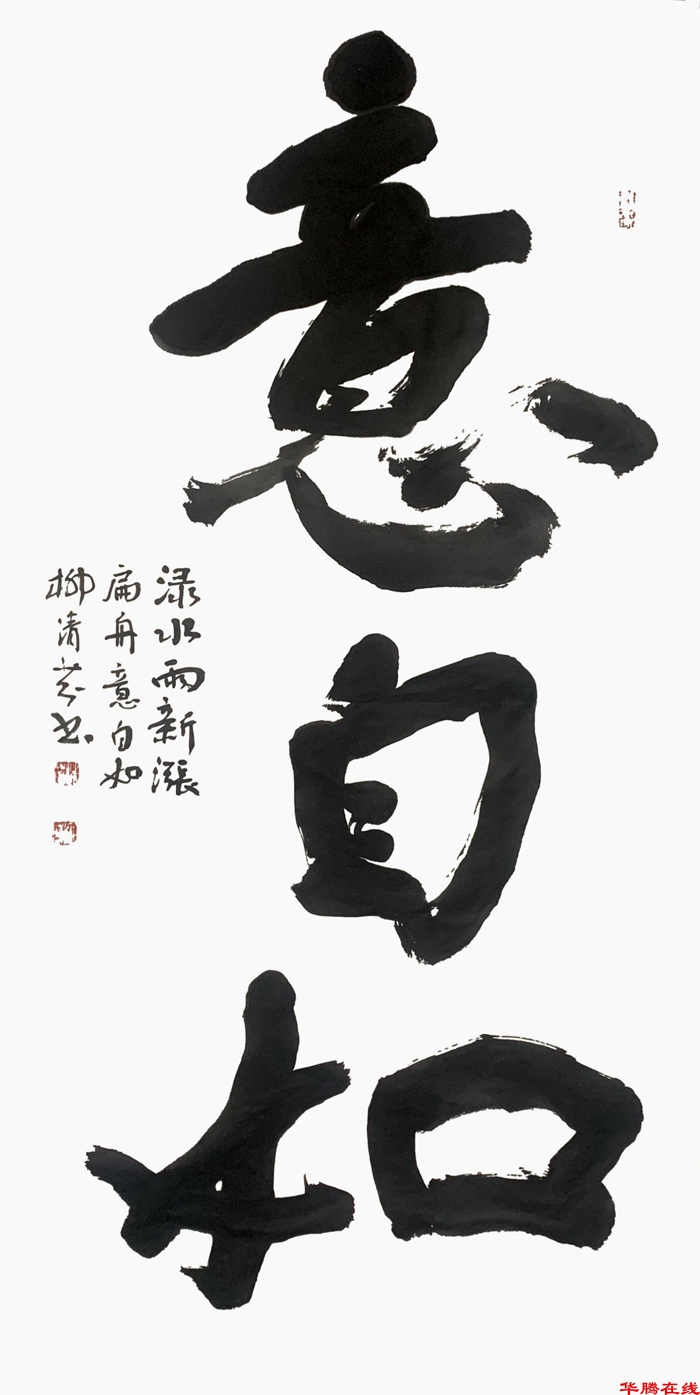 意自如
渌水雨新漲
扁舟意自如
柳清
书
华腾在线